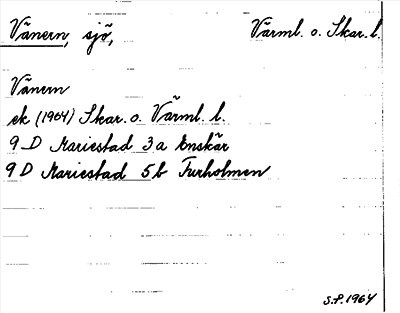 Vänern, sjö, Värml. o. Skar. l.
Vänern
ek (1904) Skar. o. Värml. l.
9 D Mariestad 3a Enskär
9 D Mariestad 5b Furholmen
S.P. 1964